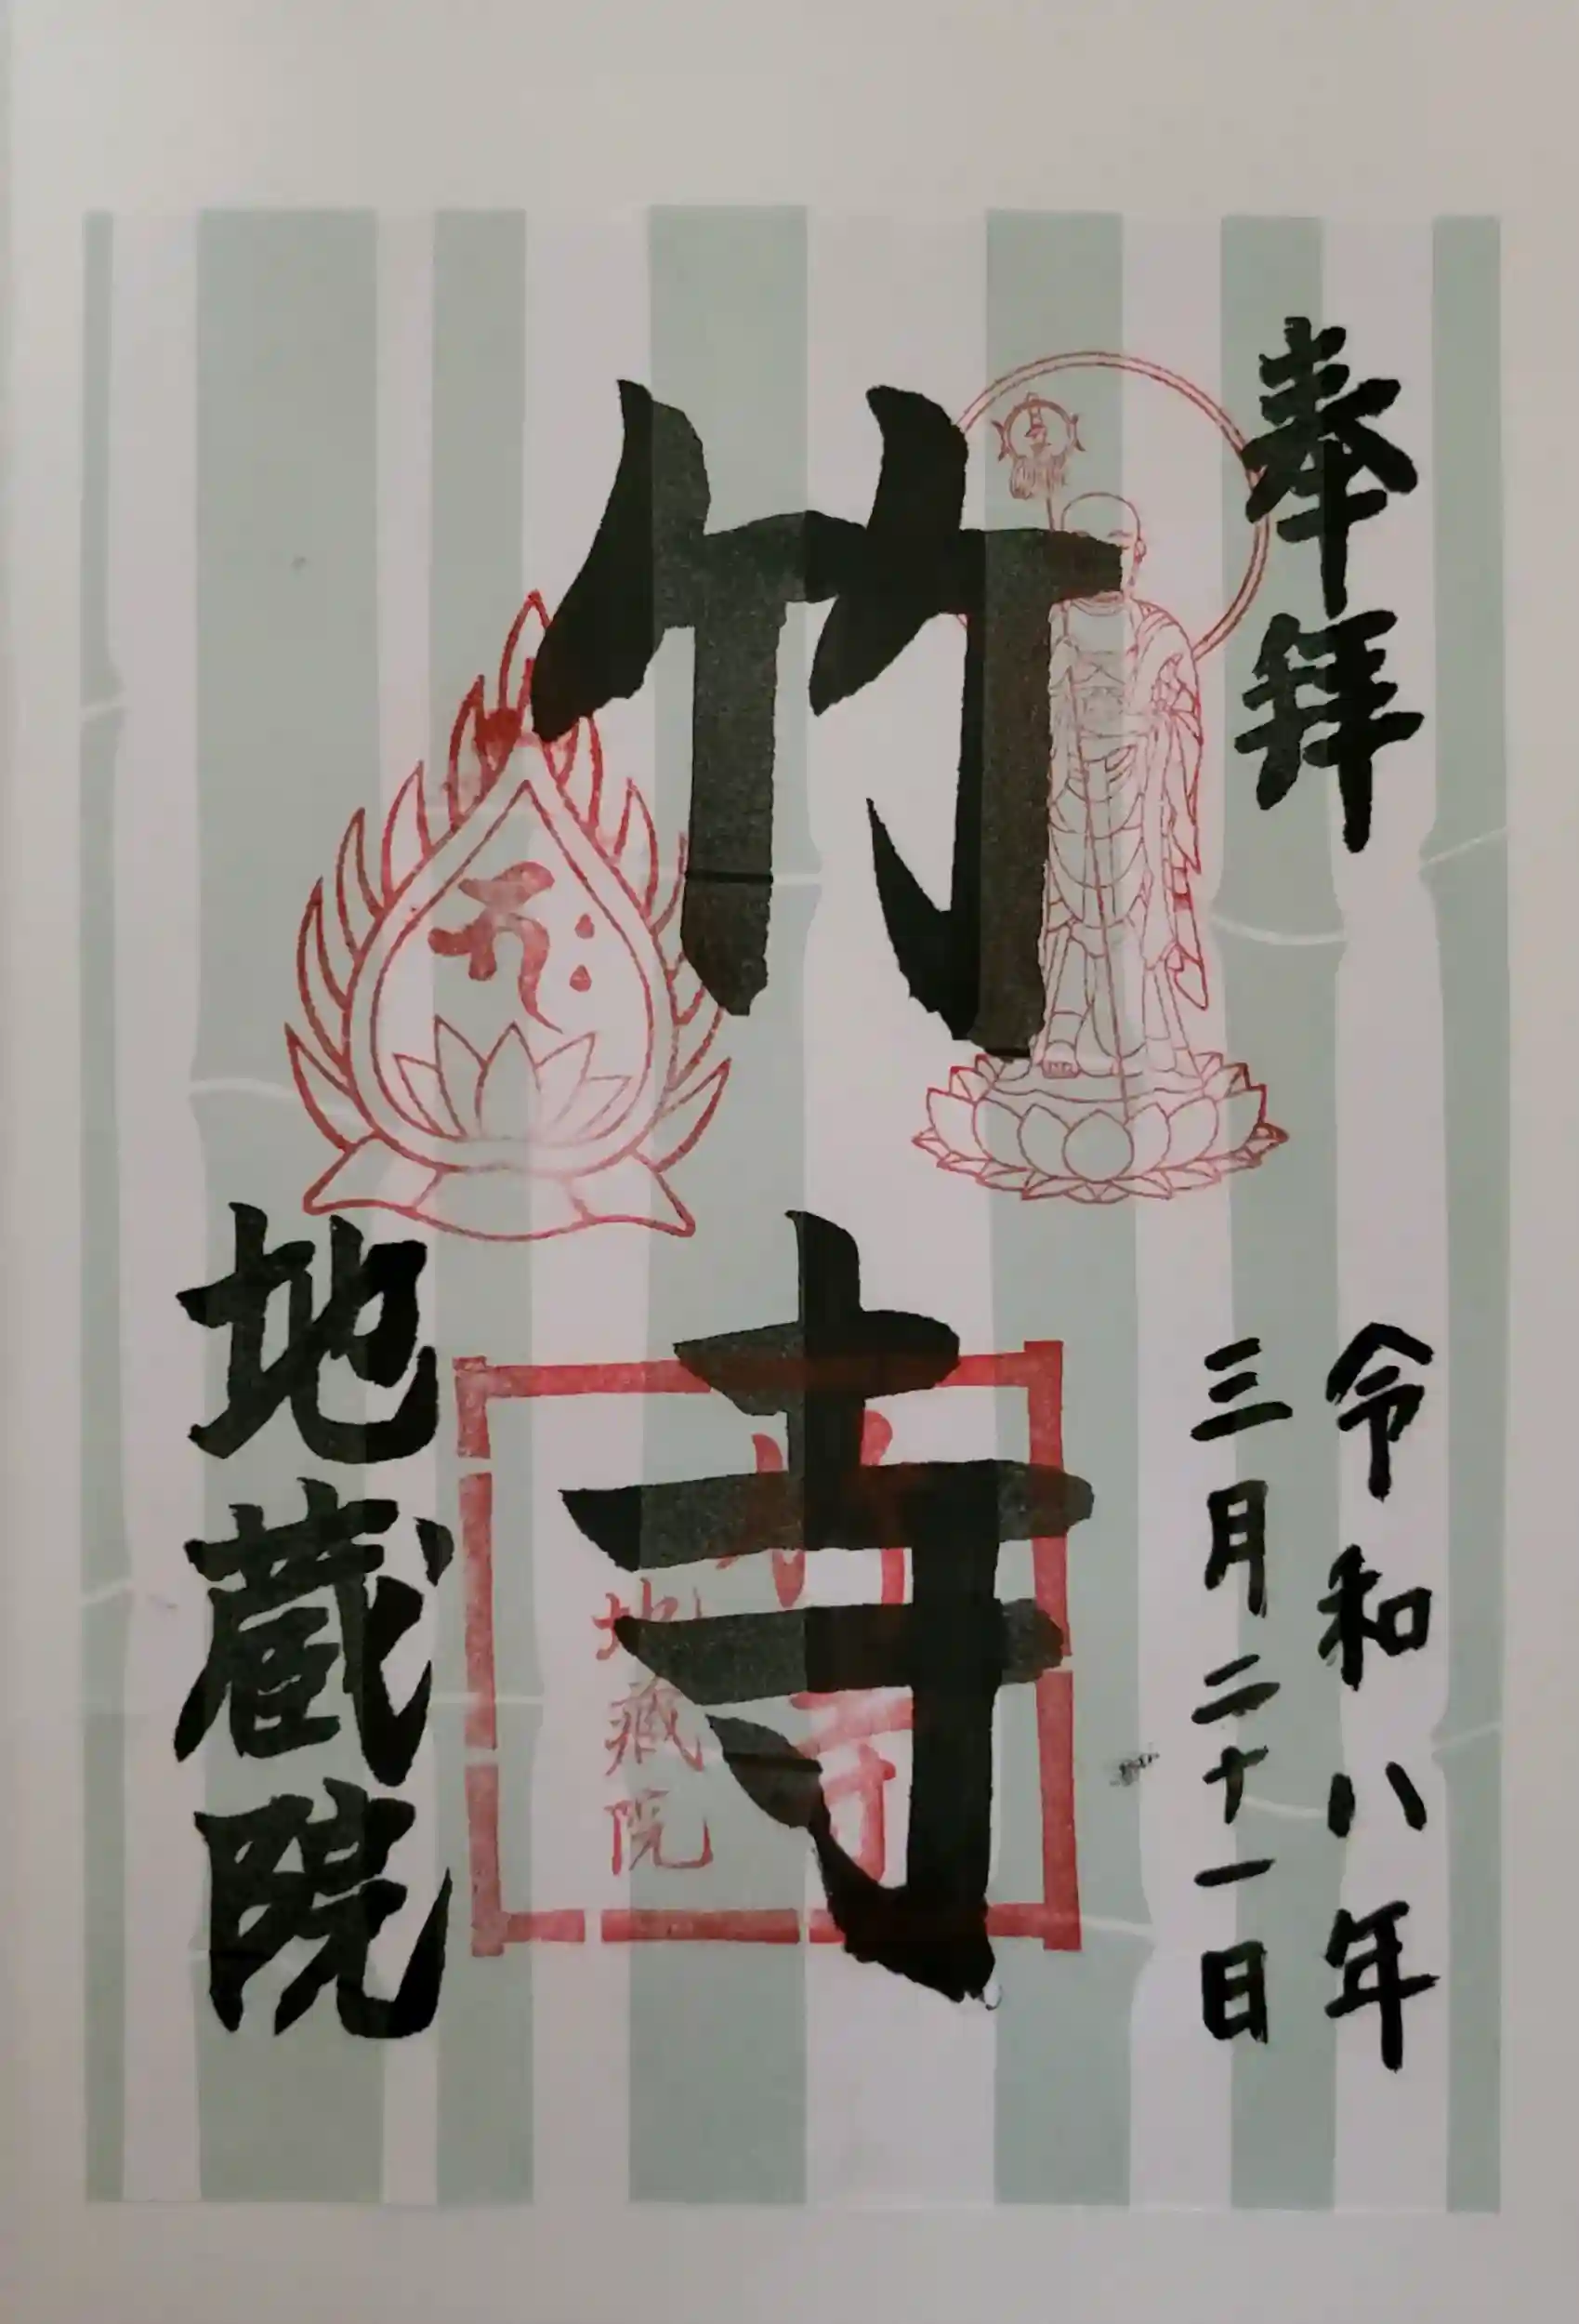 奉拝
令和八年
三月二十一日
竹寺
地蔵院
竹寺
地蔵院